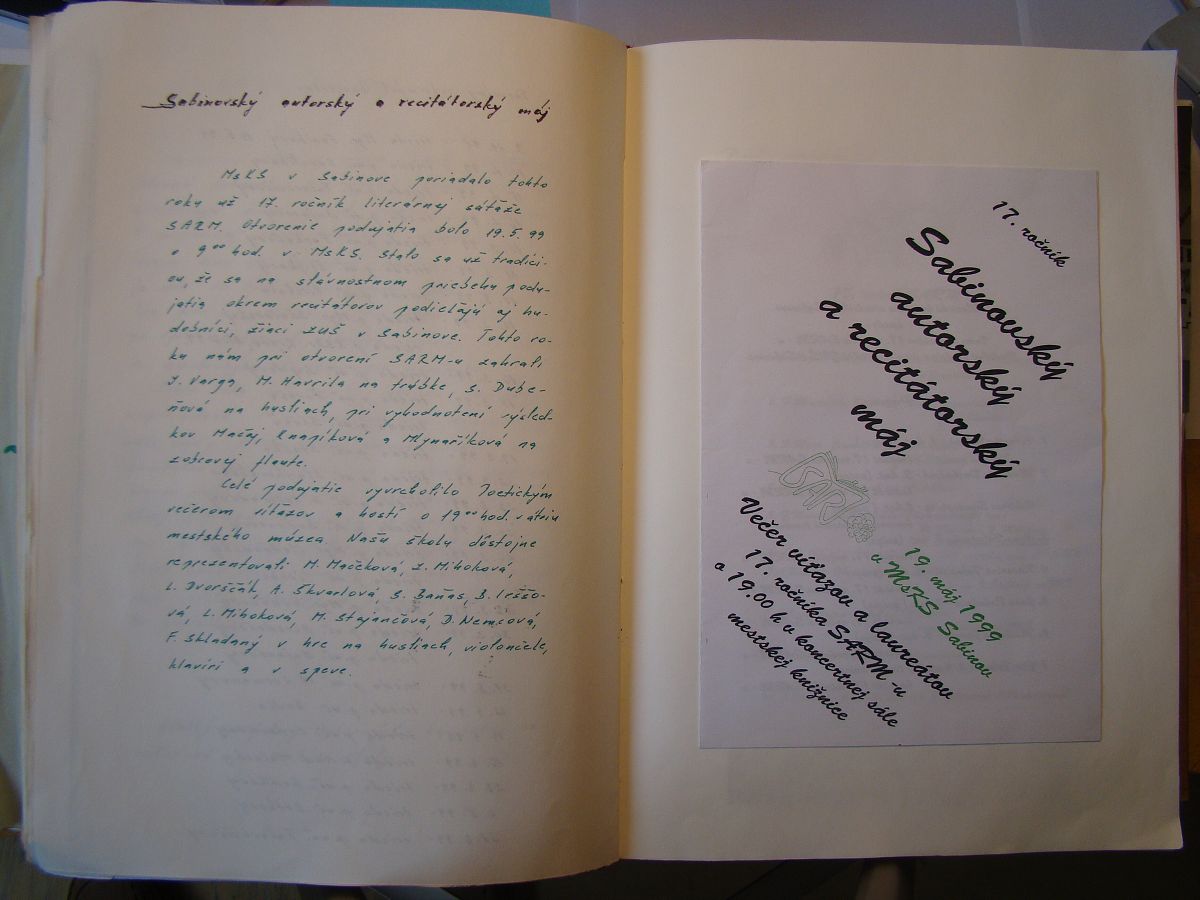 Sabinovský autorský a recitátorský máj
MsKS v Sabinove poriadalo tohto
roku už 17. ročník literárnej súťaže
SARM. Otvorenie podujatia bolo 19.5.99
o 9⁰⁰ hod. v MsKS. Stalo sa už tradíci-
ou, že sa na slávnostnom priebehu podu-
jatia okrem recitátorov podieľajú aj hu-
dobníci, žiaci ZUŠ v Sabinove. Tohto ro-
ku nám pri otvorení SARM-u zahrali
J. Varga, M. Havrila na trúbke, S. Dube-
ňová na husliach, pri vyhodnotení výsled-
kov Mačej, Knapíková a Mlynaříková na
zobcovej flaute.
Celé podujatie vyvrcholilo Poetickým
večerom víťazov a hostí o 19⁰⁰ hod. v átriu
mestského múzea. Našu školu dôstojne
reprezentovali M. Macčková, Z. Mihoková,
L. Dvorščák, A. Škvarlová, S. Baňas, B.
vá, L. Mihoková, M. Stajančová, D. Nemcová,
F. Skladaný v hre na husliach, violončele,
klavíri a v speve.
17. ročník
Sabinovský
autorský
a recitátorský
máj
SARM
19. máj 1999
v MsKS Sabinov
Večer víťazov a laureátov
17. ročníka SARM-u
o 19.00 h v koncertnej sále
mestskej knižnice